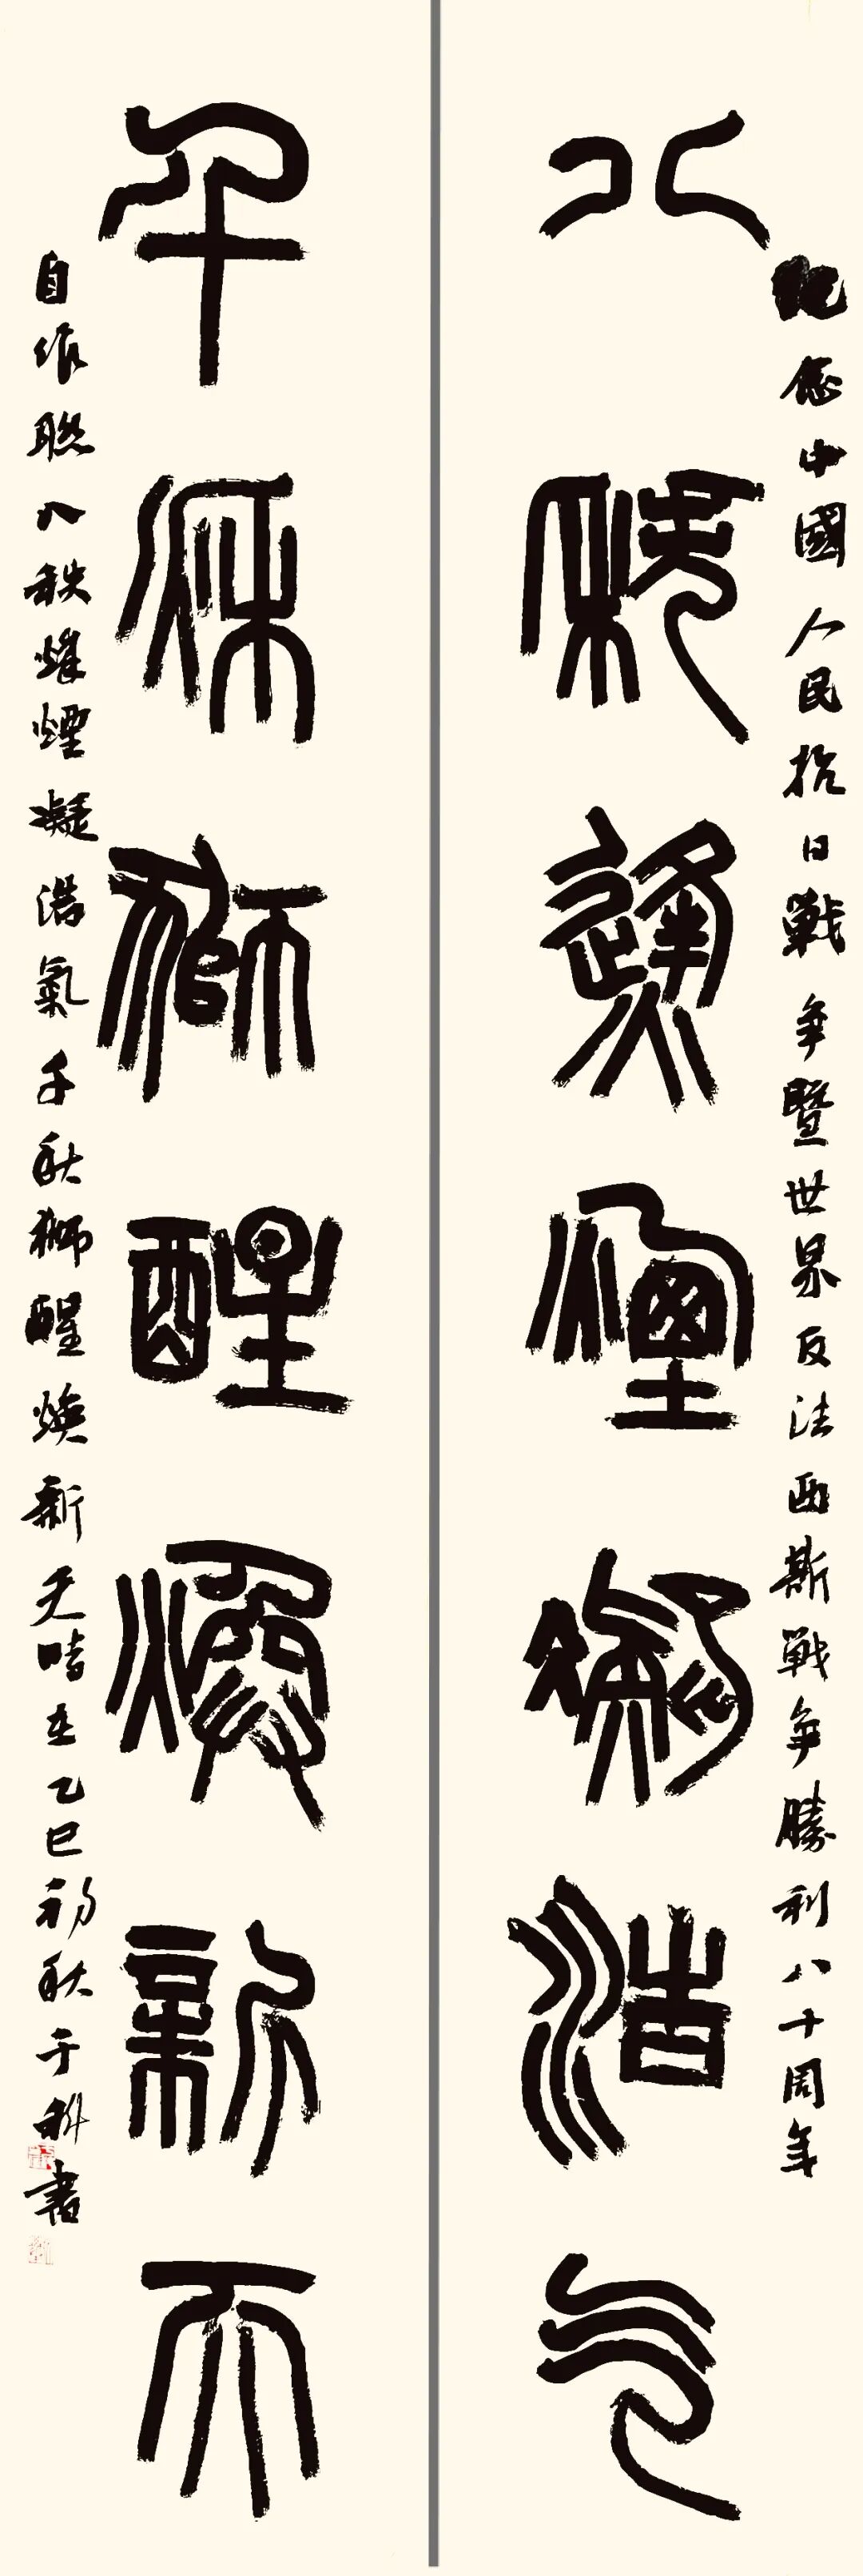 紀念中國人民抗日戰爭暨世界反法西斯戰爭勝利八十周年
八秩烽煙凝浩气
千秋獅醒煥新天
自作聯八秩烽煙凝浩氣千秋獅醒煥新天時在乙巳初秋于科書